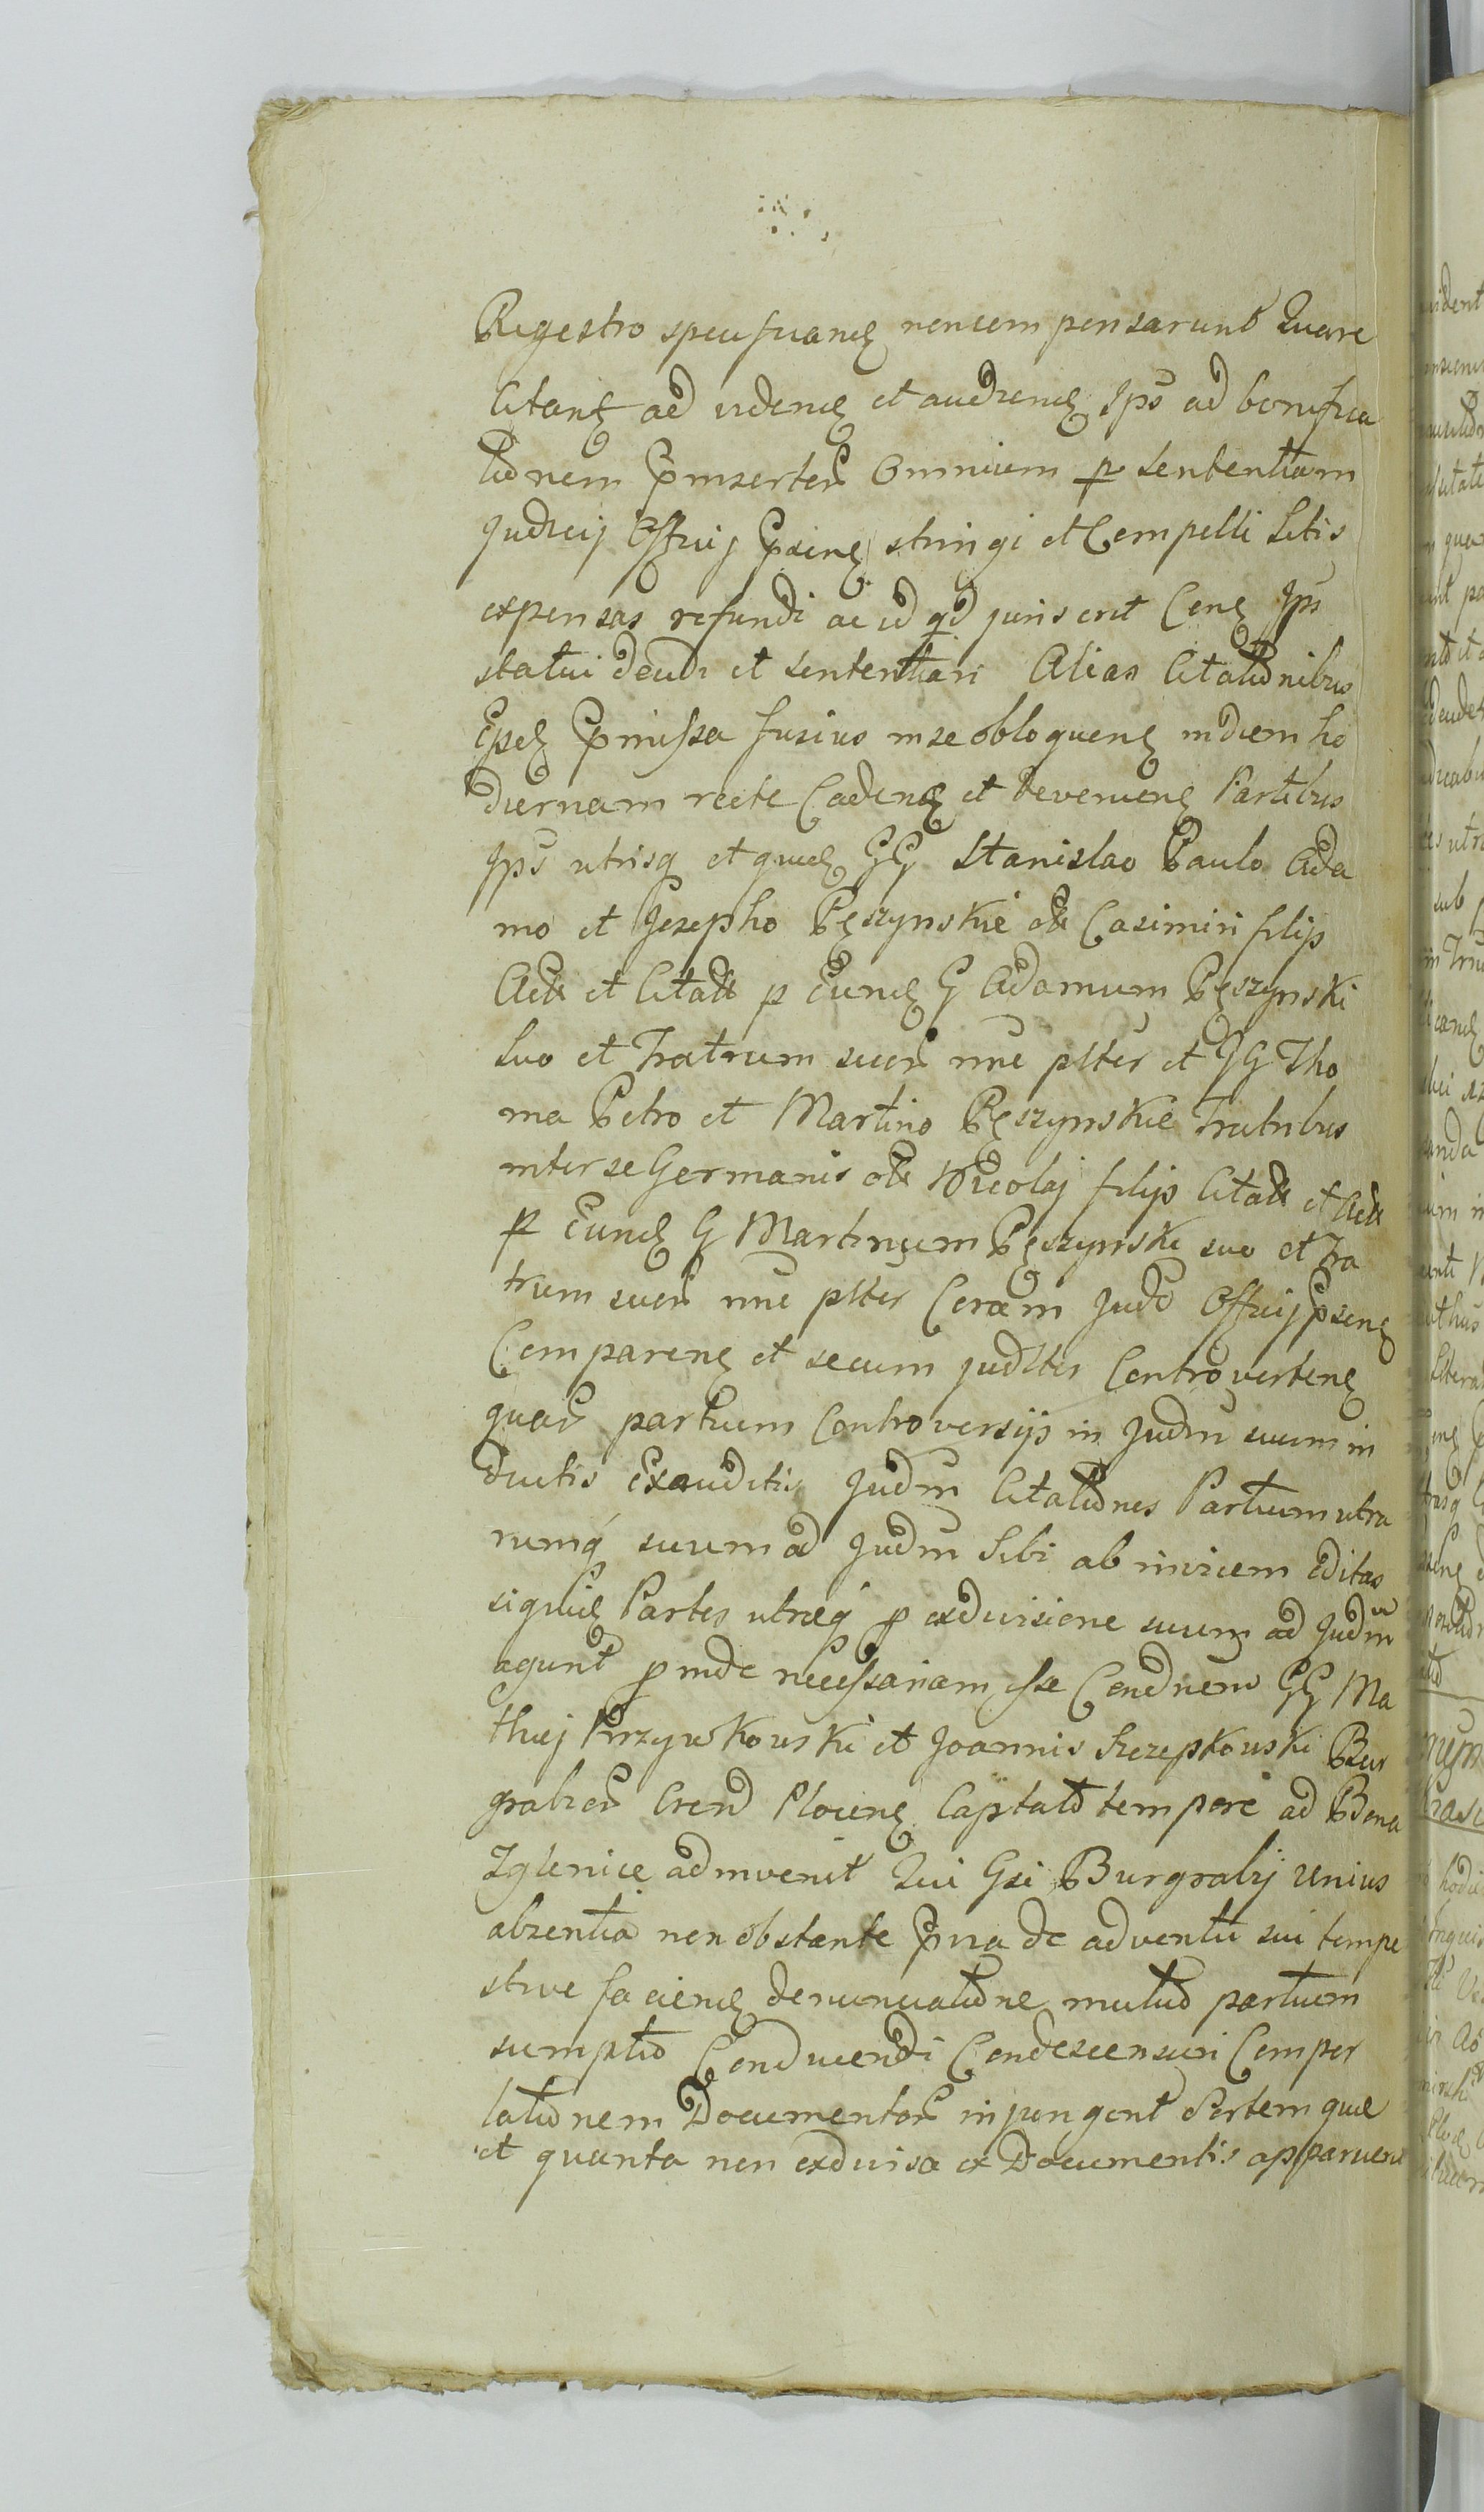 Regestro specificand noncompensarunt Quare
Citant ad videnđ et audienđ Ips ad bonifica
tionem Pmissorter Omnium p Sententiam
Judicij Officij Psenê stringi et Compelli Litis
expensas refundi ac id qd juris erit Cenê Ips
statui decidi et sententiari Alias Citationibus
Epsê Pmissa fusius inse obloquenê indiem ho
diernam recte Cadenê et Devenienê Partibus
Ips utrisq et quidê GG Stanislao Paulo Ada
mo et Josepho Pęszynskie olt Casimiri filijs
Acts et Citatt p Eundê G Adamum Pęszynski
Suo et Fratrum suor nne pltter et GG Tho
ma Petro et Martino Pęszynskie Fratribus
inter se Germanis olt Nicolaj filijs Citatt et Actt
p Eundê G Martinum Pęszynski suo et Fra
trum suor nne pltter Coram Judo Officij Psenê
Comparenê et secum judltter Controvertenê
quar partium Controversijs in Judm suum in
ductis Exauditis Judm Citationes Partium utra
rumq suum ad Judm Sibi ab invicem editas
siquidê Partes utræq p exdivisione suum ad Judm
agunt pinde necessariam esse Condnem GG Ma
thiej Przywkowski et Joannis Szczepkowski Bur
grabior Crend Plocenê Capitalo tempore ad Bona
Zglenice adinvenit Qui Gsi Burgrabij unius
absentia non obstante Pvia de adventu sui tempe
stive faciendê denunciatione mutuo partium
sumptu Conducendi Condescensuri Compor
tationem Documentor injungent Sortem quæ
et quanta non exdivisa ex Documentis apparuerit